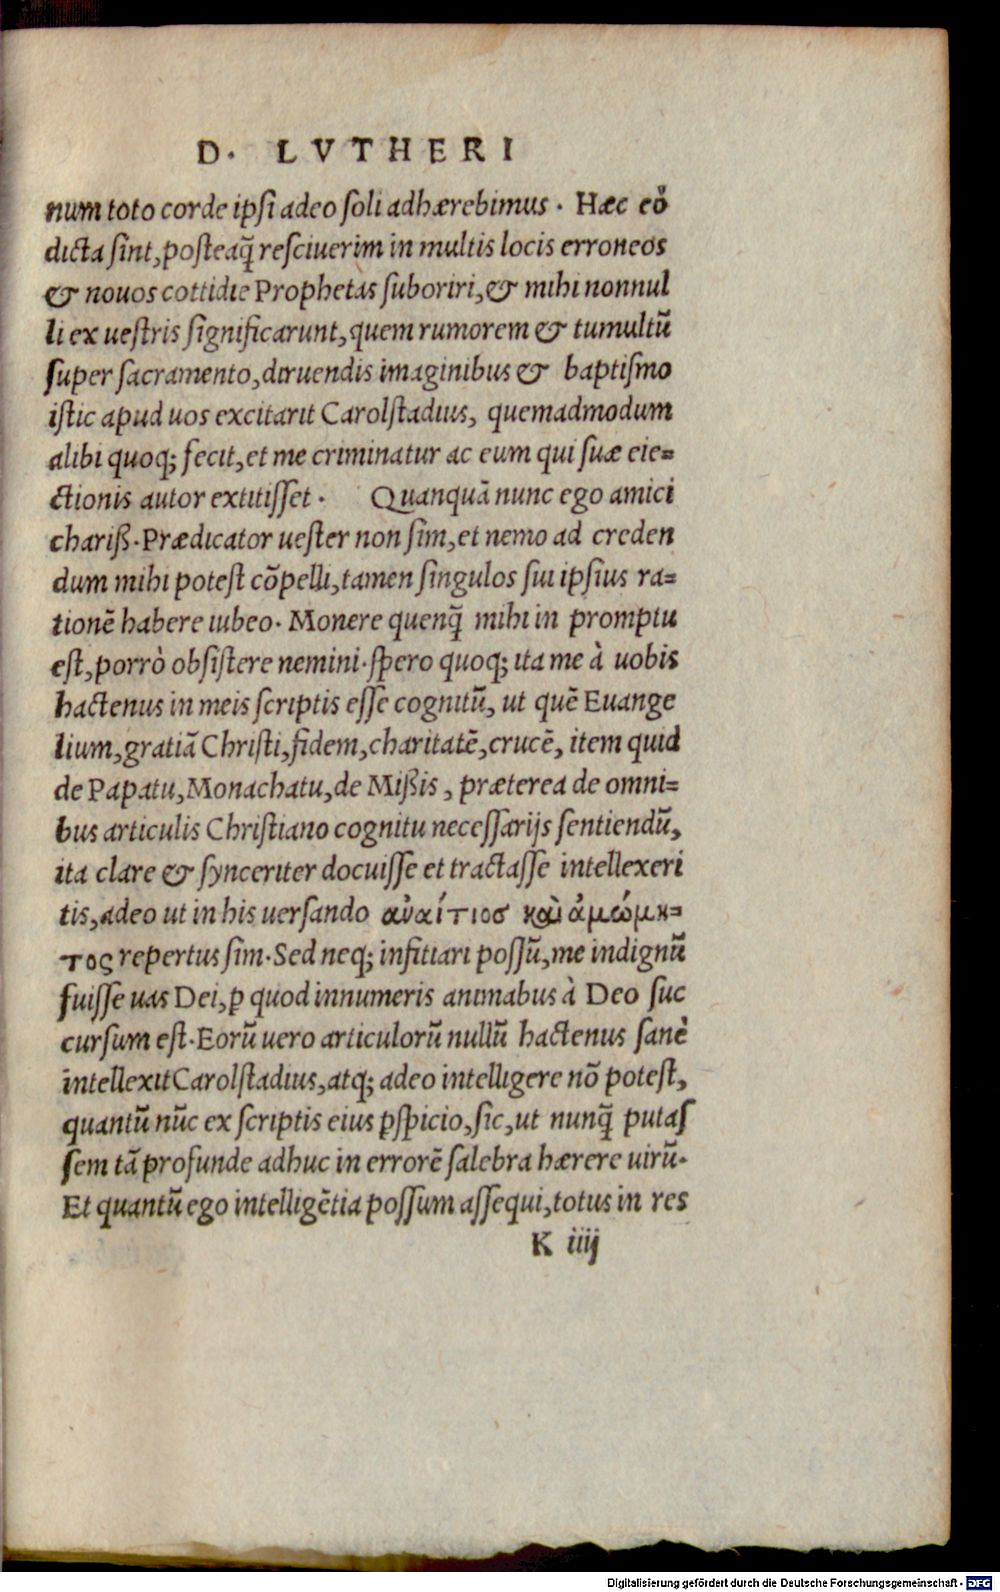 D. LVTHERI
num toto corde ipsi adeo soli adhærebimus. Hæc eo᷒
dicta sint, posteaq̃ resciuerim in multis locis erroneos
& nouos cottidie Prophetas suboriri, & mihi nonnul
li ex uestris significarunt, quem rumorem & tumultũ
super sacramento, diruendis imaginibus & baptismo
istic apud uos excitarit Carolstadius, quemadmodum
alibi quoq; fecit, et me criminatur ac eum qui suæ eie=
ctionis autor extitisset. Quanquã nunc ego amici
chariß. Prædicator uester non sim, et nemo ad creden
dum mihi potest cõpelli, tamen singulos sui ipsius ra=
tionẽ habere iubeo. Monere quenq̃ mihi in promptu
est, porrò obsistere nemini. spero quoq; ita me à uobis
hactenus in meis scriptis esse cognitũ, ut quẽ Euange
lium, gratiã Christi, fidem, charitatẽ, crucẽ, item quid
de Papatu, Monachatu, de Mißis, præterea de omni=
bus articulis Christiano cognitu necessarijs sentiendũ,
ita clare & synceriter docuisse et tractasse intellexeri
tis, adeo ut in his uersando ἀναίτιοσ καὶ ἀμώμη=
τος repertus sim. Sed neq; infitiari possũ, me indignũ
fuisse uas Dei, p quod innumeris animabus à Deo suc
cursum est. Eorũ uero articulorũ nullũ hactenus sanè
intellexit Carolstadius, atq; adeo intelligere nõ potest,
quantũ nũc ex scriptis eius pspicio, sic, ut nunq̃ putas
sem tã profunde adhuc in errorẽ salebra hærere uirũ.
Et quantũ ego intelligẽtia possum assequi, totus in res
K iiij
Digitalisierung gefördert durch die Deutsche Forschungsgemeinschaft - DFG